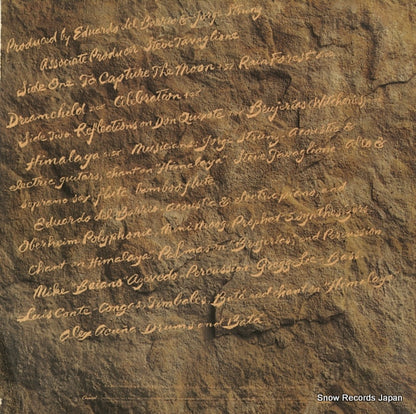 Produced by Eduardo del Barrio & Jorge Strunz
Associate Producer Steve Tavaglione
Side One To Capture The Moon Rain Forest
Dreamchild Obligation
Side Two Reflections on Don Quixote Brujerias (Witchcries)
Himalaya Musicians Jorge Strunz Acoustic &
electric guitars, chant on Himalaya Steve Tavaglione Alto &
soprano sax, flute, bamboo flute
Eduardo del Barrio acoustic & electric pianos and
Oberheim Polyphonic, Mini Moog, Prophet Synthesizers
Chant on Himalaya, Palmas on Brujerias, and Percussion
Mike "Baiano" Azevedo Percussion Gregg Lee Bass
Luis Conte Congas, Timbales, Bata and chant on Himalaya
Alex Acuña Drums and Bata
Snow Records Japan